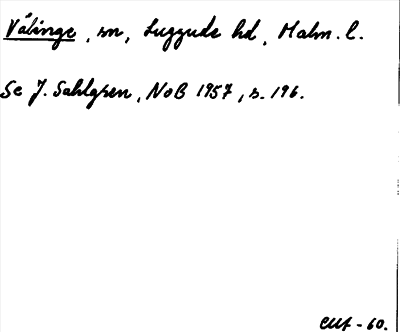 Välinge, sn, Luggude hd, Malm. l.
Se J. Sahlgren, NoB 1957, s. 196.
-60.